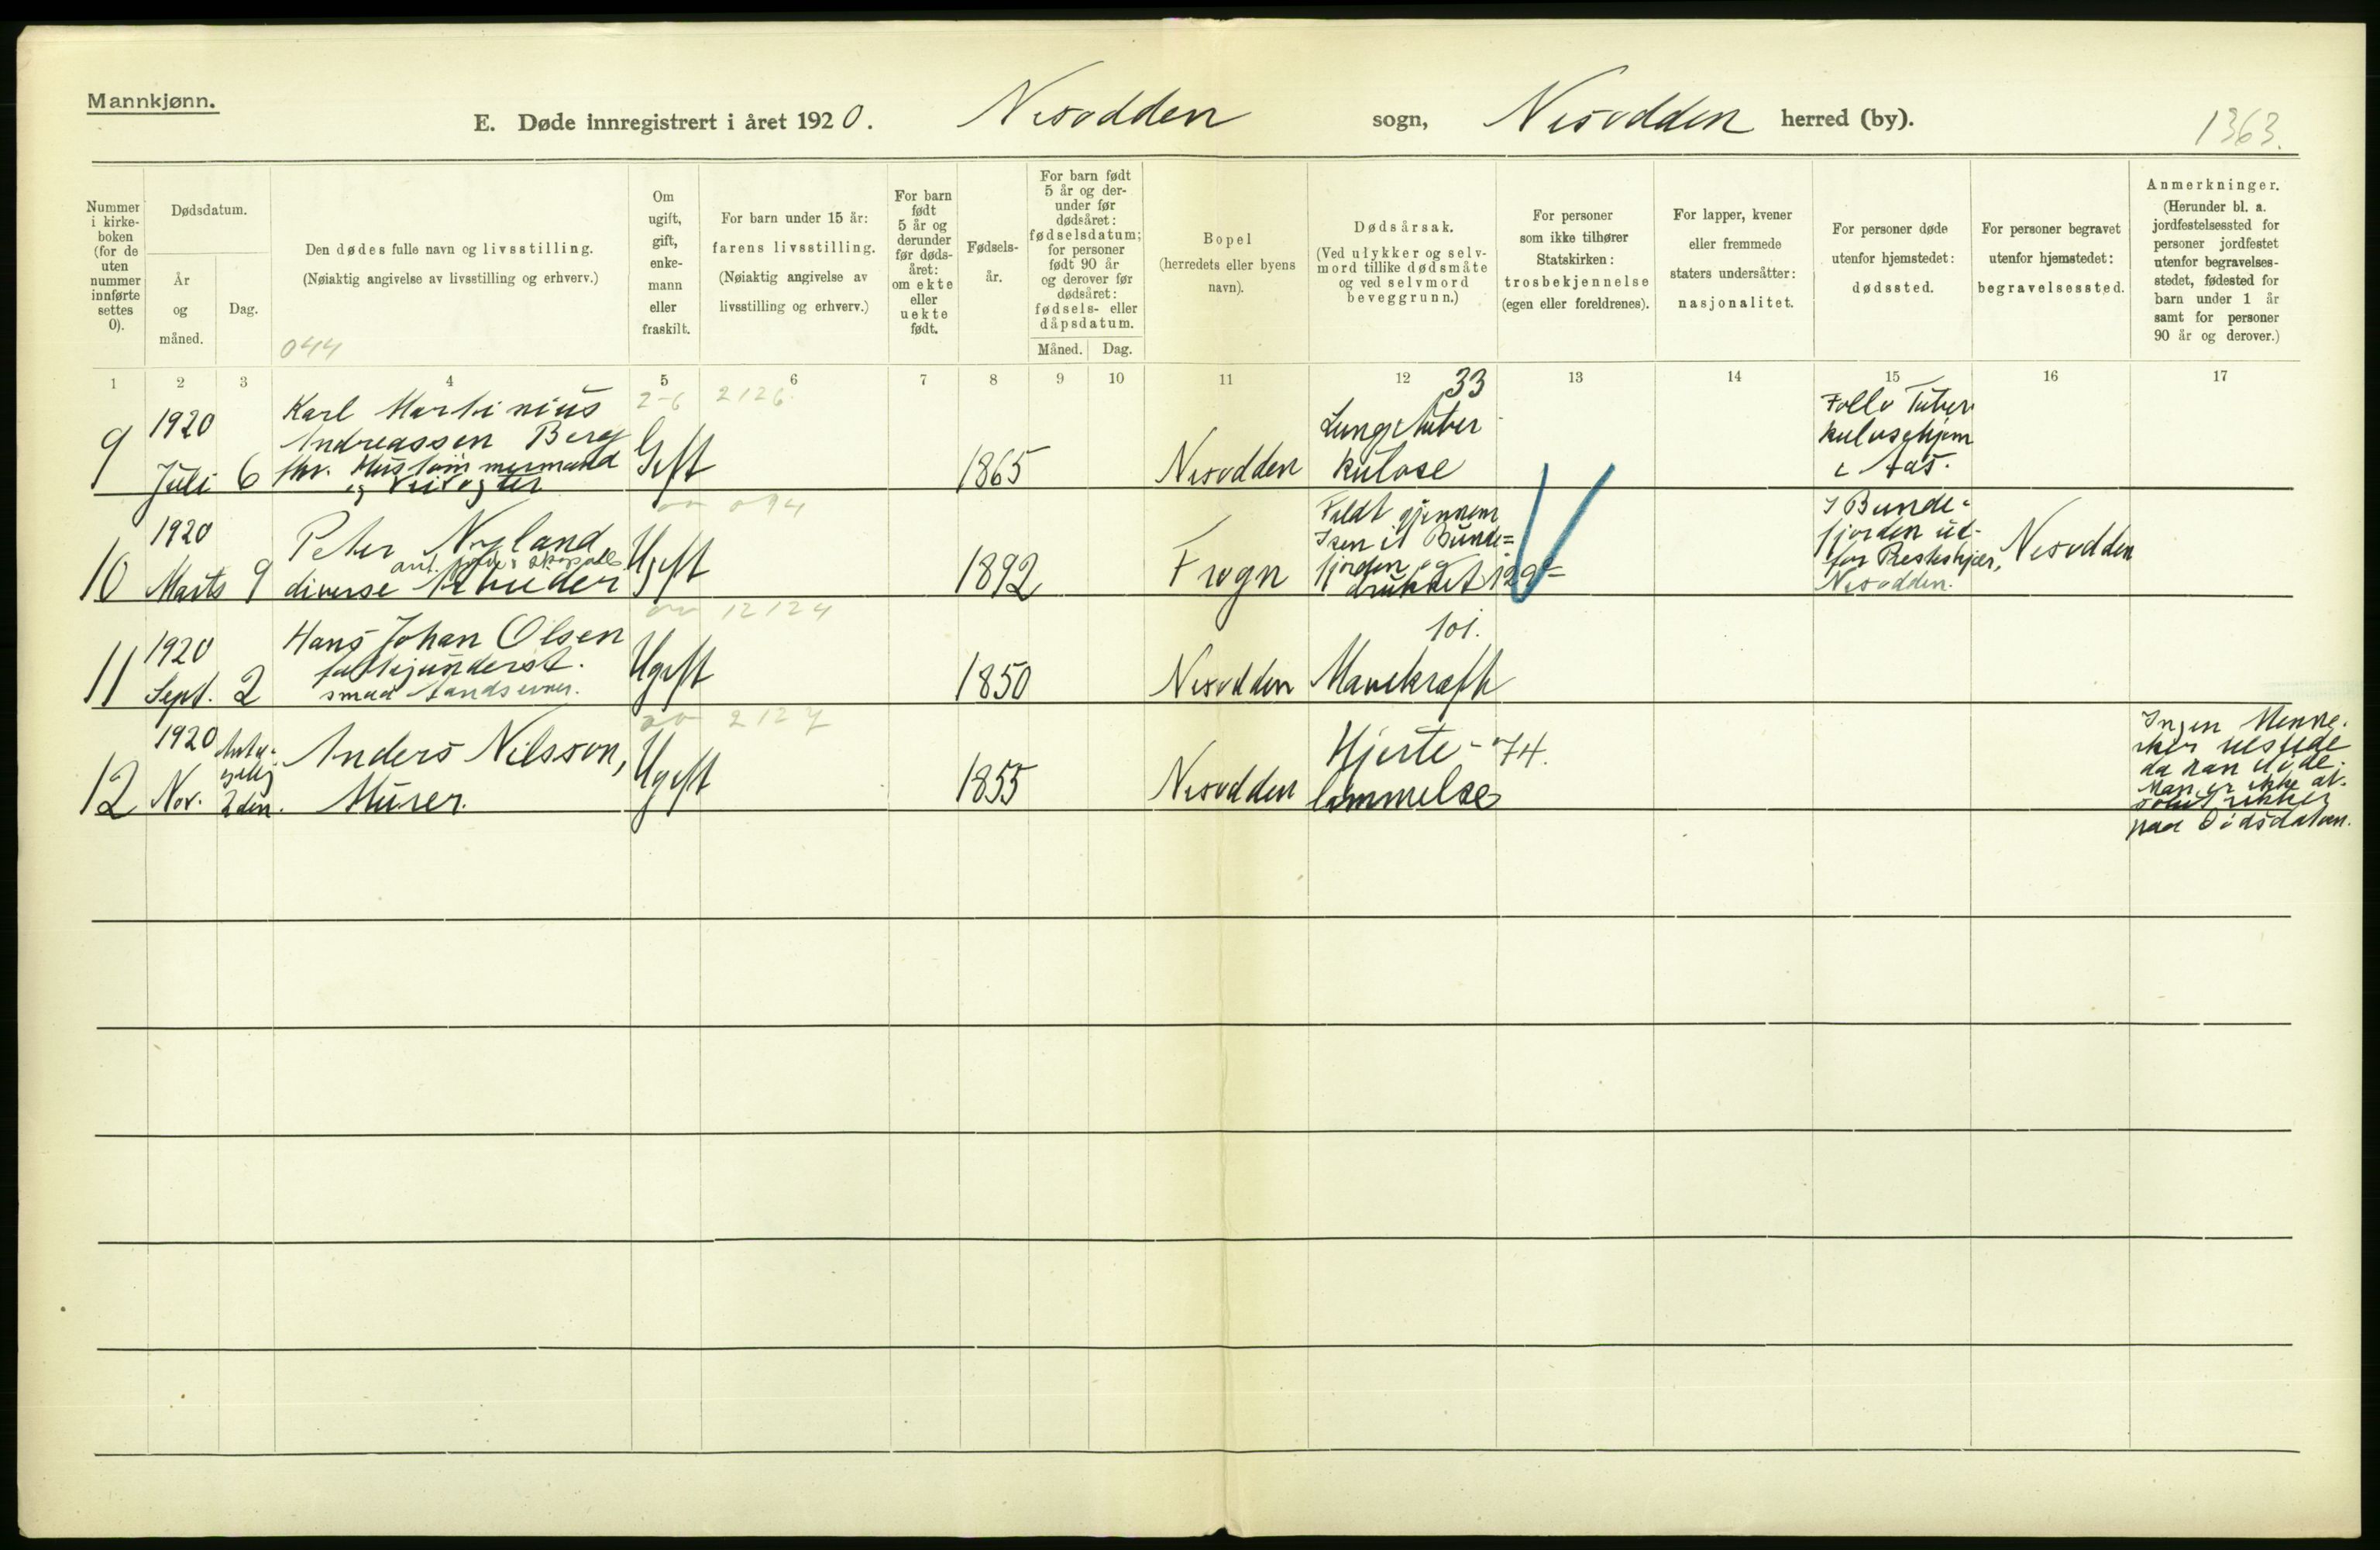 Mannkjønn.
E. Døde innregistrert i året 1920. Nesodden sogn, Nesodden herred (by).
1363.
Nummer i kirke-boken (for de uten nummer innførte settes 0).
Dødsdatum.
År og måned.
Dag.
Den dødes fulle navn og livsstilling.
(Nøiaktig angivelse av livsstilling og erhverv.)
044
Om ugift, gift, enke-mann eller fraskilt.
For barn under 15 år: farens livsstilling.
(Nøiaktig angivelse av livsstilling og erhverv.)
For barn født 5 år og derunder før døds-året: om ekte eller uekte født.
Fødsels-år.
For barn født 5 år og der-under før dødsåret: fødselsdatum; for personer født 90 år og derover før dødsåret: fødsels- eller dåpsdatum.
Måned. Dag.
Bopel
(herredets eller byens navn).
Dødsårsak.
(Ved ulykker og selv-mord tillike dødsmåte og ved selvmord beveggrunn.)
For personer som ikke tilhører Statskirken: trosbekjennelse (egen eller foreldrenes).
For lapper, kvener eller fremmede staters undersåtter: nasjonalitet.
For personer døde utenfor hjemstedet: dødssted.
For personer begravet utenfor hjemstedet: begravelsessted.
Anmerkninger.
(Herunder bl. a. jordfestelsessted for personer jordfestet utenfor begravelses-stedet, fødested for barn under 1 år samt for personer 90 år og derover.)
1 2 3 4 5 6 7 8 9 10 11 12 13 14 15 16 17
9
1920
Juli 6
Karl Martinius
Andreassen Berg
og
Gift
2126
1865
Nesodden
33
Lungetuber
kulose
Follo Tuber
kulosehjem
i Aas.
10
1920
Marts 9
Peter Nyland
diverse Arbeider
Ugift
094
1892
Frogn
Faldt gjennem
Isen i Bunde=
fjorden og
druknet
I Bunde-
fjorden ud-
for Presteskjær,
Nesodden.
Nesodden
11
1920
Sept. 2
Hans Johan Olsen
smaa
Ugift
12124
1850
Nesodden
101.
Mavekræft
12
1920
Nov.
Anta-
gelig
2den.
Anders Nilsson,
Murer.
Ugift
2127
1855
Nesodden
Hjerte- 74.
lammelse
Ingen Menne-
sker tilstede
da han døde.
Man er ikke ab-
solut sikker
paa Dødsdatoen.